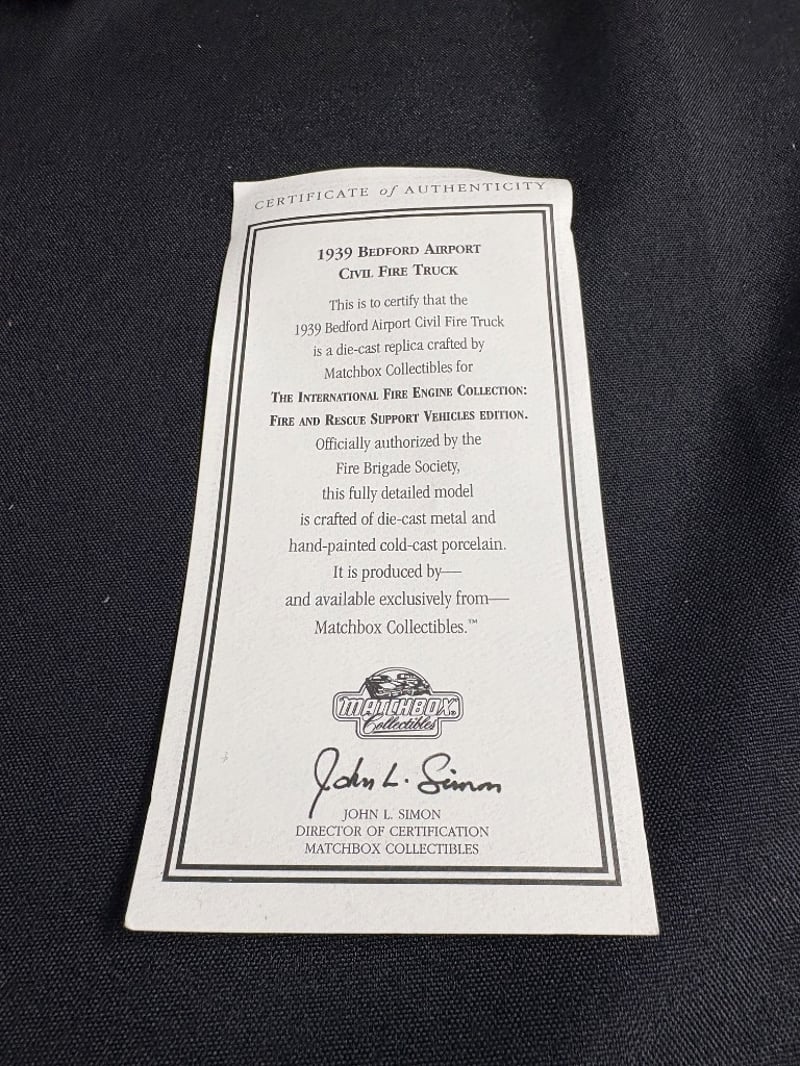 CERTIFICATE of AUTHENTICITY
1939 BEDFORD AIRPORT
CIVIL FIRE TRUCK
This is to certify that the
1939 Bedford Airport Civil Fire Truck
is a die-cast replica crafted by
Matchbox Collectibles for
THE INTERNATIONAL FIRE ENGINE COLLECTION:
FIRE AND RESCUE SUPPORT VEHICLES EDITION.
Officially authorized by the
Fire Brigade Society,
this fully detailed model
is crafted of die-cast metal and
hand-painted cold-cast porcelain.
It is produced by—
and available exclusively from—
Matchbox Collectibles.™
MATCHBOX®
Collectibles
John L. Simon
JOHN L. SIMON
DIRECTOR OF CERTIFICATION
MATCHBOX COLLECTIBLES